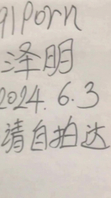 91Porn
泽明
2024.6.3
请自拍达